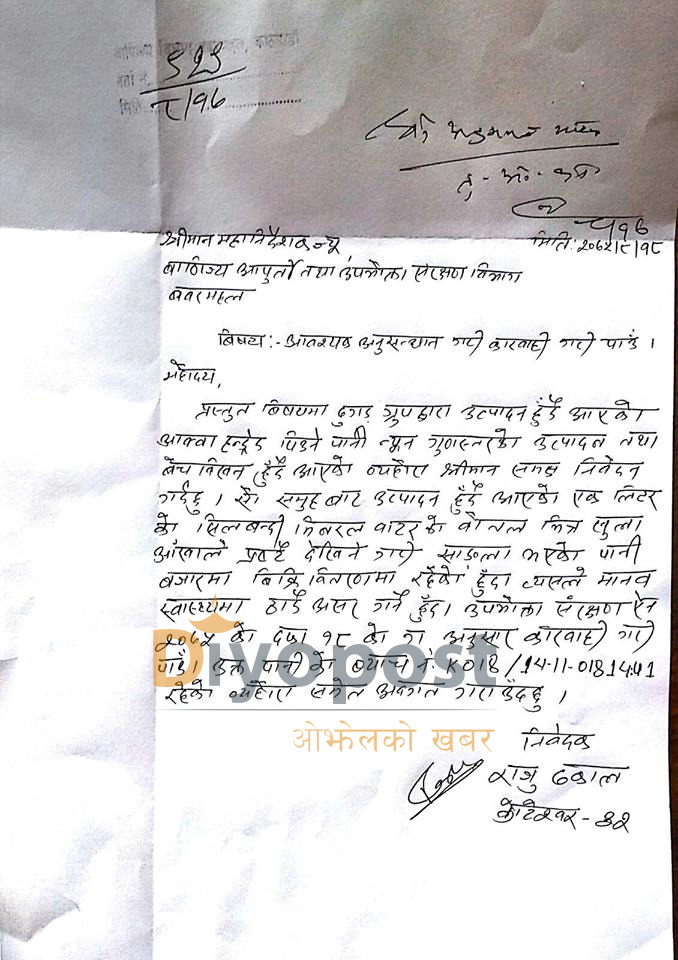 दर्ता नं.
मिति
८/१८
मिति: २०७५/८/१८
श्रीमान महानिर्देशक ज्यू
बाणिज्य आपुर्ती तथा उपभोक्ता संरक्षण विभाग
बबरमहल
बिषय:- आवश्यक अनुसन्धान गरी कारवाही गरी पाउँ ।
महोदय,
प्रस्तुत बिषयमा दुगड ग्रुप द्वारा उत्पादन हुँदै आएको
आक्वा हन्ड्रेड पिउने पानी न्यून गुणस्तरको उत्पादन तथा
बेच बिखन हुँदै आएको व्यहोरा श्रीमान समक्ष निवेदन
गर्दछु । सो समुह बाट उत्पादन हुँदै आएको एक लिटर
को सिलबन्दी मिनरल वाटरको बोतल भित्र खुला
आँखाले प्रष्टै देखिने गरी साङला मरेको पानी
बजारमा बिक्रि वितरणमा रहेको हुँदा त्यसले मानव
स्वास्थ्यमा ठाडै असर गर्ने हुँदा उपभोक्ता संरक्षण ऐन
२०७५ को दफा १८ को ग अनुसार कारवाही गरी
पाउँ । उक्त पानी को ब्याच नं K018/14-11-018 14:41
रहेको व्यहोरा समेत अवगत गराउँदछु ।
Diyopost
ओझेलको खबर
निवेदक
राजु ढकाल
कोटेश्वर - ३२